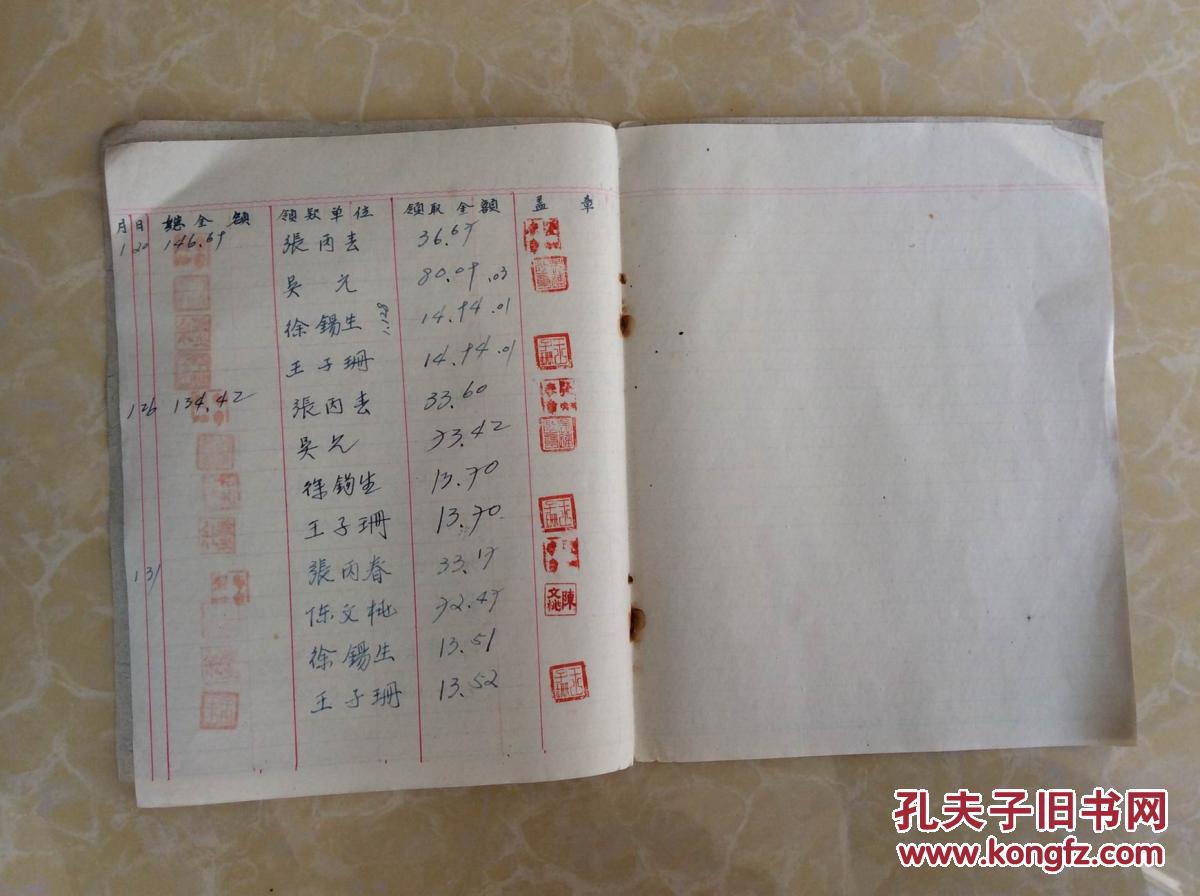 月 日 總金額 領欵单位 領取金額 盖章
1 20 146.69 張丙春 36.67
吳 80.09 .03
徐錫生 14.94 .01
王子珊 14.94 .01
1 26 134.42 張丙春 33.60
吳 73.42
徐錫生 13.70
王子珊 13.70
1 31 張丙春 33.17
陈文桃 72.47 陳文桃
徐錫生 13.51
王子珊 13.52
孔夫子旧书网
www.kongfz.com